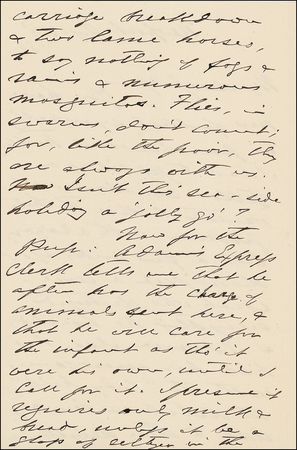 carriage breakdown
& two lame horses,
to say nothing of fogs &
rains & numerous
mosquitos. Flies, in
swarms, don't count;
for, like the poor, they
are always with us.
Isn't this sea-side
holiday a "jolly go"?
Now for the
Pup: Adams Express
Clerk tells me that he
often has the charge of
animals sent here, &
that he will care for
the infant as tho' it
were his own, until I
call for it. I presume it
requires only milk &
bread, unless it be a
of either in the